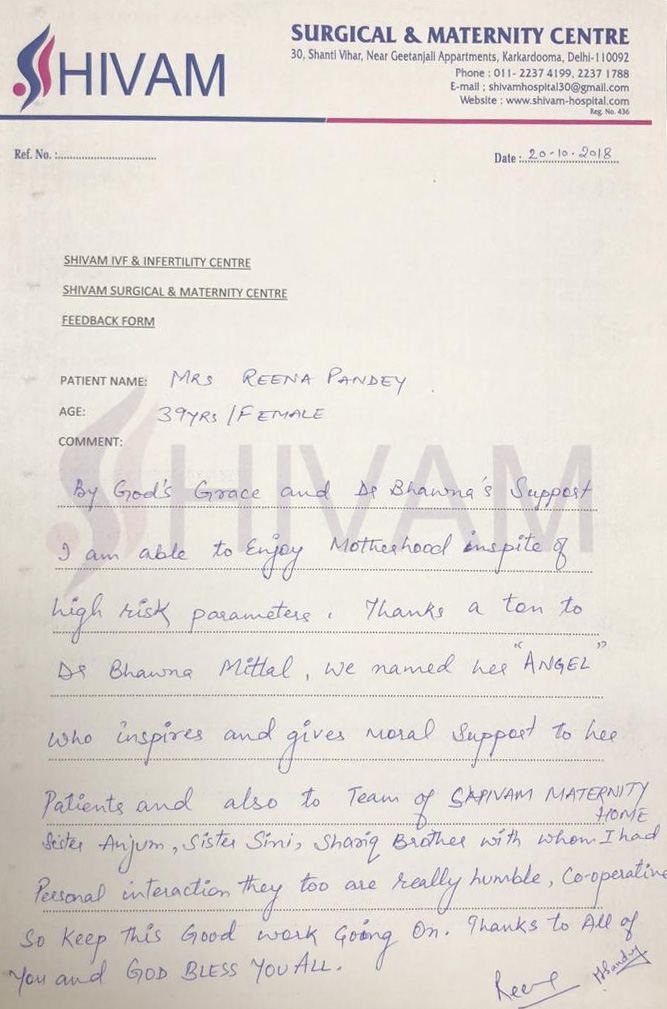 SHIVAM
SURGICAL & MATERNITY CENTRE
30, Shanti Vihar, Near Geetanjali Appartments, Karkardooma, Delhi-110092
Phone : 011- 2237 4199, 2237 1788
E-mail : shivamhospital30@gmail.com
Website : www.shivam-hospital.com
Reg. No. 436
Ref. No. :
Date : 20-10-2018
SHIVAM IVF & INFERTILITY CENTRE
SHIVAM SURGICAL & MATERNITY CENTRE
FEEDBACK FORM
PATIENT NAME: MRS REENA PANDEY
AGE: 39YRS / FEMALE
COMMENT:
SHIVAM
By God's Grace and Dr Bhawna's Support
I am able to Enjoy Motherhood inspite of
high risk parameters. Thanks a ton to
Dr Bhawna Mittal, we named her "ANGEL"
who inspires and gives moral Support to her
Patients and also to Team of SHIVAM MATERNITY
HOME
Sister Anjum, Sister Sini, Shariq Brother with whom I had
Personal interaction they too are really humble, Co-operative
So Keep this Good work Going On. Thanks to All of
You and GOD BLESS YOU ALL.
Reena Pandey